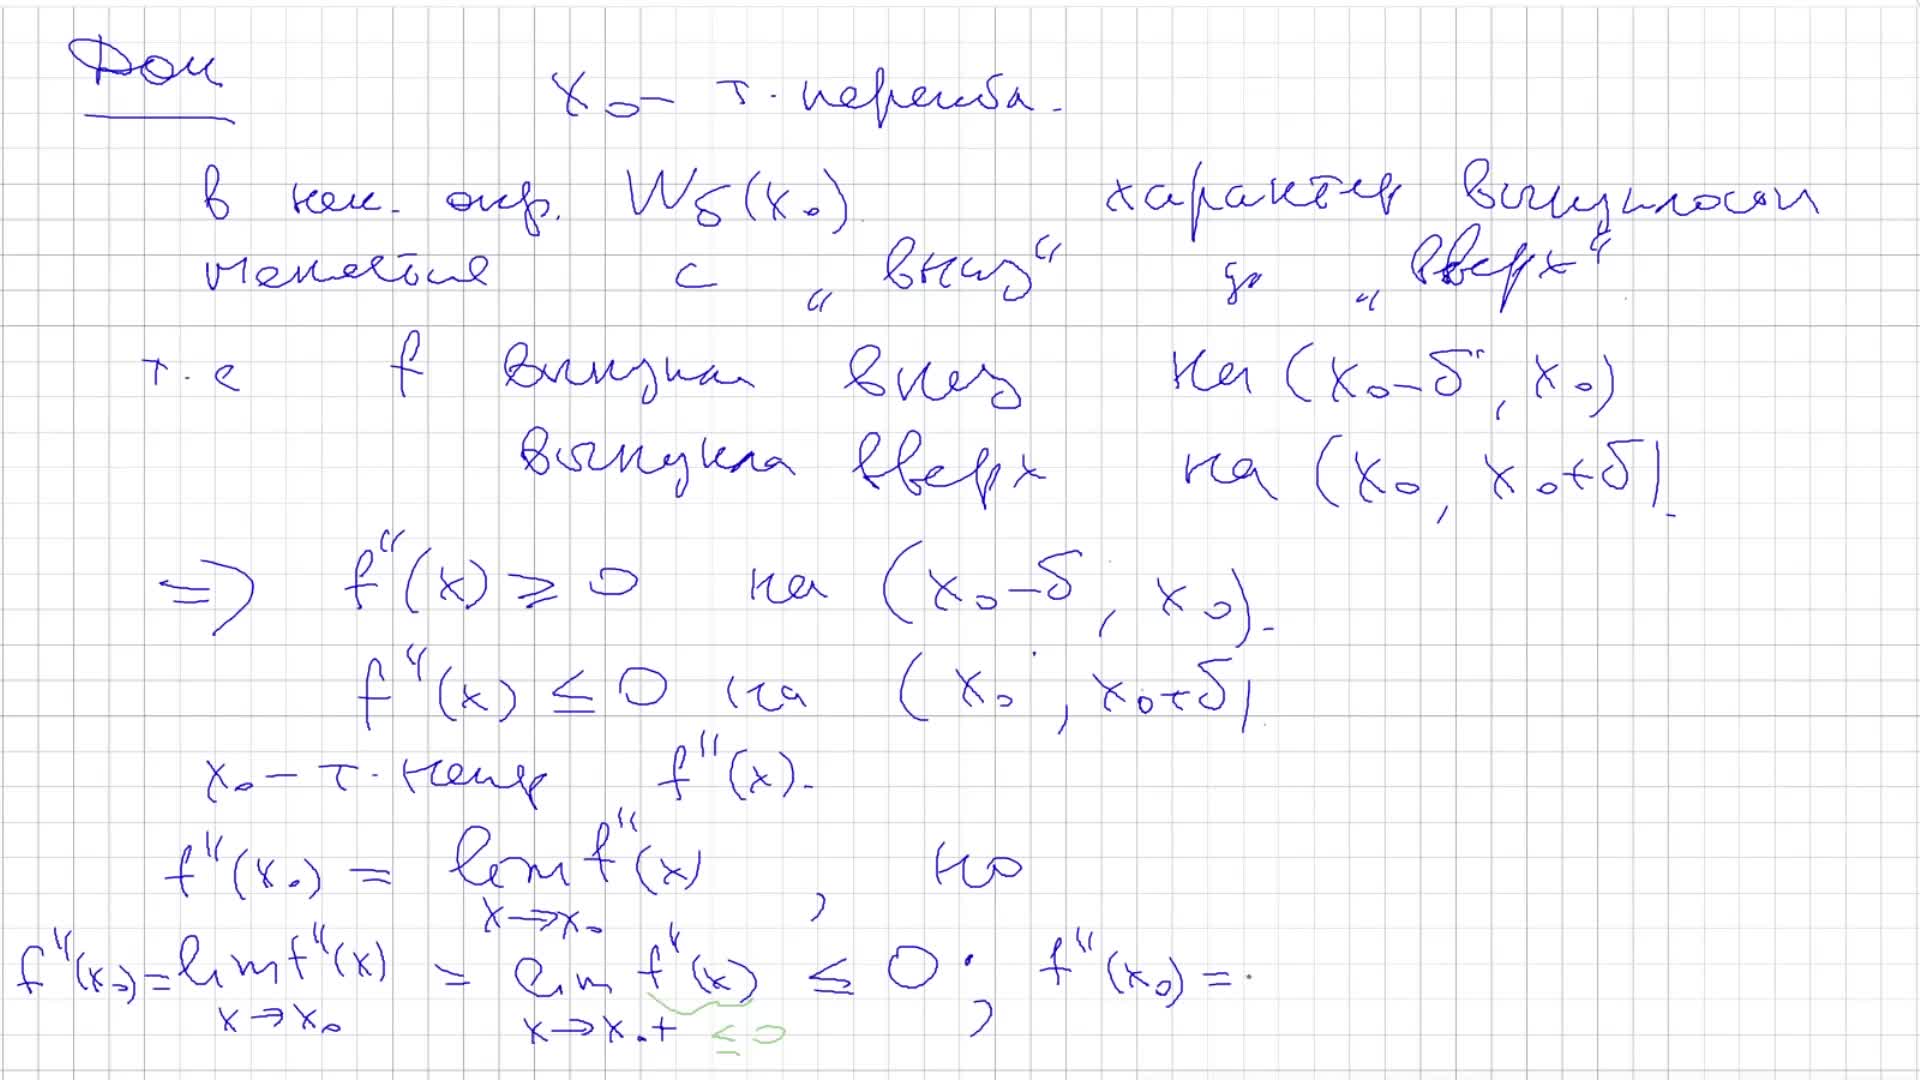 Док
x₀ – т. перегиба.
в нек. окр. W_δ(x₀) характер выпуклости
меняется с „вниз“ до „вверх“
т.е f выпуклая вниз на (x₀-δ, x₀)
выпукла вверх на (x₀, x₀+δ).
=> f''(x) ≥ 0 на (x₀-δ, x₀).
f''(x) ≤ 0 на (x₀, x₀+δ).
x₀ – т. непр f''(x).
f''(x₀) = lim f''(x) , но
x→x₀
f''(x₀) = lim f''(x) = lim f''(x) ≤ 0 ; f''(x₀) =
x→x₀ x→x₀+ ≤ 0